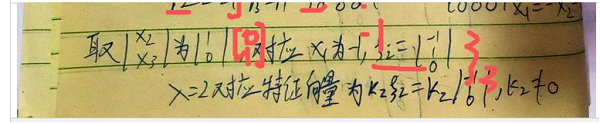 取|x₂ x₃|为|1 0|[0 1]对应 x₁为-1, ξ₂=|-1 1 0|
λ=2对应特征向量为k₂ξ₂=k₂|-1 1 0|, k₂≠0